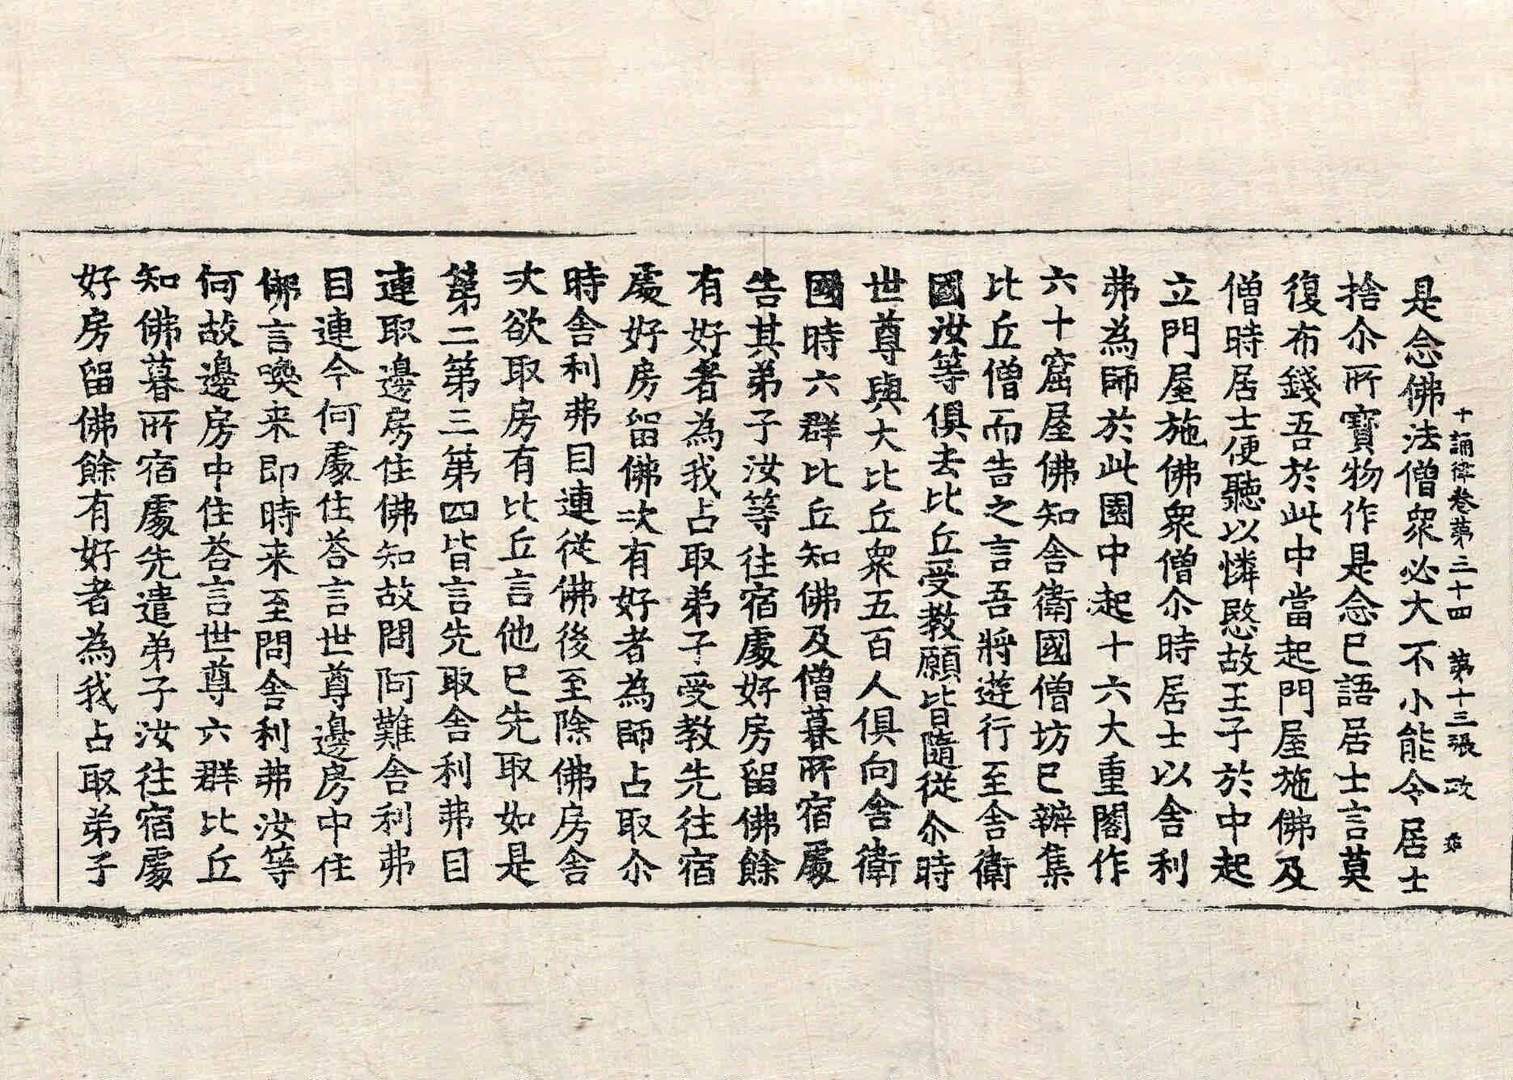 十誦律卷第三十四　第十三張　政
是念佛法僧衆必大不小能令居士
捨尒所寶物作是念已語居士言莫
復布錢吾於此中當起門屋施佛及
僧時居士便聽以憐愍故王子於中起
立門屋施佛衆僧尒時居士以舍利
弗為師於此園中起十六大重閣作
六十窟屋佛知舍衛國僧坊已辦集
比丘僧而告之言吾將遊行至舍衛
國汝等俱去比丘受教願皆隨從尒時
世尊與大比丘衆五百人俱向舍衛
國時六群比丘知佛及僧暮所宿處
告其弟子汝等往宿處好房留佛餘
有好者為我占取弟子受教先往宿
處好房留佛次有好者為師占取尒
時舍利弗目連從佛後至除佛房舍
次欲取房有比丘言他已先取如是
第二第三第四皆言先取舍利弗目
連取邊房住佛知故問阿難舍利弗
目連今何處住荅言世尊邊房中住
佛言喚来即時来至問舍利弗汝等
何故邊房中住荅言世尊六群比丘
知佛暮所宿處先遣弟子汝往宿處
好房留佛餘有好者為我占取弟子